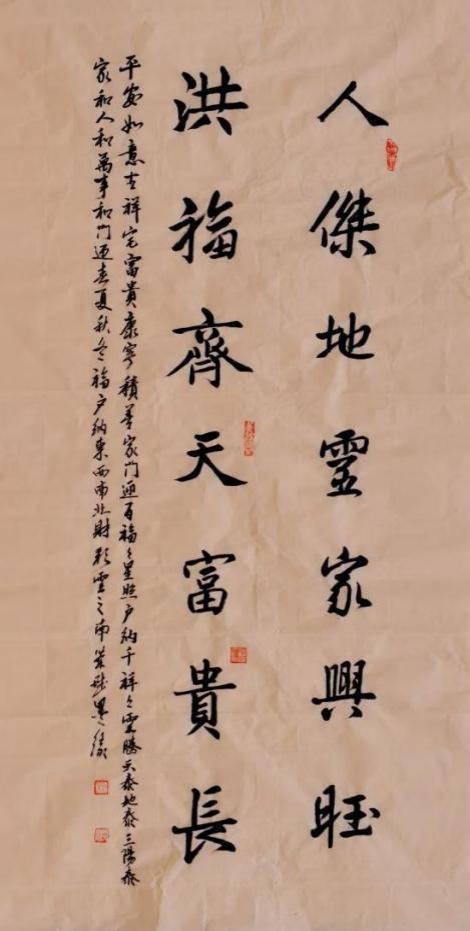 人傑地霊家興旺
洪福齊天富貴長
平安如意吉祥宅富貴康寧積善家門迎百福々星照戶納千祥々雲騰天泰地泰三陽泰
家和人和萬事和門迎春夏秋冬福戶納東西南北財彩雲之南榮墨緣